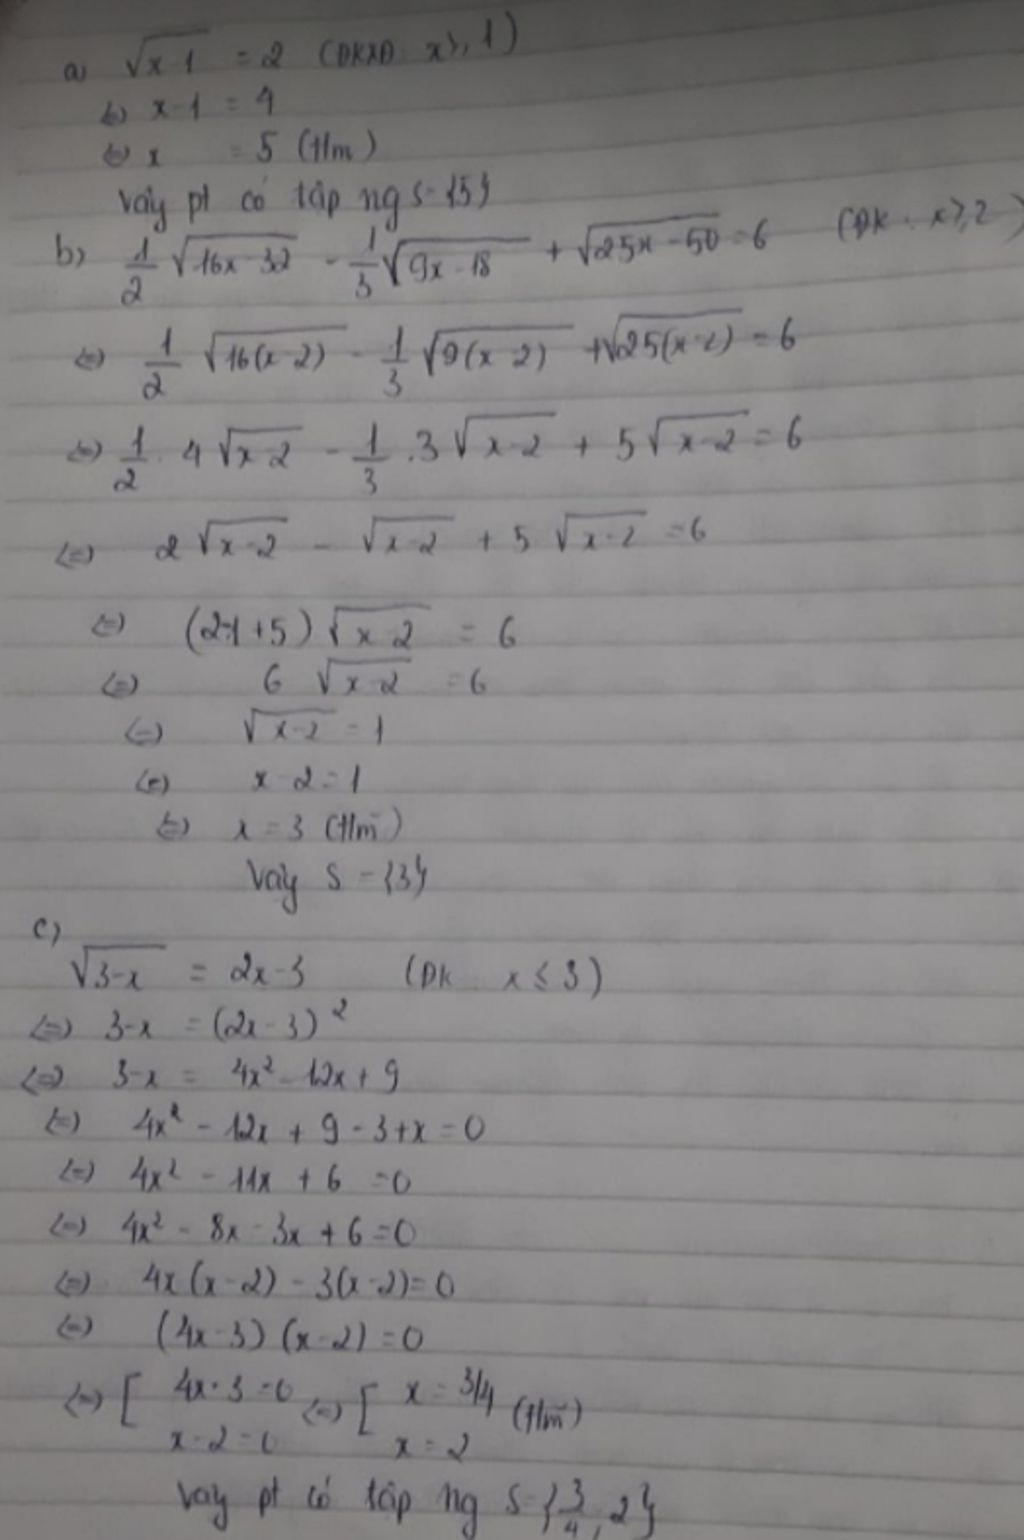 a) √(x-1) = 2 (ĐKXĐ: x ≥ 1)
⇔ x-1 = 4
⇔ x = 5 (t/m)
Vậy pt có tập ng S = {5}
b) 1/2 √(16x-32) - 1/3 √(9x-18) + √(25x-50) = 6 (ĐK: x ≥ 2)
⇔ 1/2 √(16(x-2)) - 1/3 √(9(x-2)) + √(25(x-2)) = 6
⇔ 1/2 . 4√(x-2) - 1/3 . 3√(x-2) + 5√(x-2) = 6
⇔ 2√(x-2) - √(x-2) + 5√(x-2) = 6
⇔ (2-1+5)√(x-2) = 6
⇔ 6√(x-2) = 6
⇔ √(x-2) = 1
⇔ x-2 = 1
⇔ x = 3 (t/m)
Vậy S = {3}
c)
√(3-x) = 2x-3 (ĐK: x ≤ 3)
⇔ 3-x = (2x-3)²
⇔ 3-x = 4x² - 12x + 9
⇔ 4x² - 12x + 9 - 3 + x = 0
⇔ 4x² - 11x + 6 = 0
⇔ 4x² - 8x - 3x + 6 = 0
⇔ 4x(x-2) - 3(x-2) = 0
⇔ (4x-3)(x-2) = 0
⇔ [ 4x-3 = 0 ⇔ [ x = 3/4 (t/m)
x-2 = 0 x = 2
Vậy pt có tập ng S = {3/4, 2}